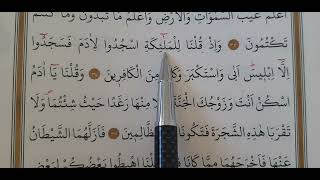 اَعْلَمُ غَيْبَ السَّمٰوَاتِ وَالْاَرْضِ وَاَعْلَمُ مَا تُبْدُونَ وَمَا كُنْتُمْ
تَكْتُمُونَ ﴿٣٣﴾ وَاِذْ قُلْنَا لِلْمَلٰٓئِكَةِ اسْجُدُوا لِاٰدَمَ فَسَجَدُٓوا
اِلَّٓا اِبْلٖيسَ اَبٰى وَاسْتَكْبَرَ وَكَانَ مِنَ الْكَافِرٖينَ ﴿٣٤﴾ وَقُلْنَا يَٓا اٰدَمُ
اسْكُنْ اَنْتَ وَزَوْجُكَ الْجَنَّةَ مِنْهَا رَغَدًا حَيْثُ شِئْتُمَا وَلَا
تَقْرَبَا هٰذِهِ الشَّجَرَةَ فَتَكُونَا الظَّالِمٖينَ ﴿٣٥﴾ فَاَزَلَّهُمَا الشَّيْطَانُ
عَنْهَا فَاَخْرَجَهُمَا مِمَّا كَانَا اهْبِطُوا بَعْضُكُمْ لِبَعْضٍ